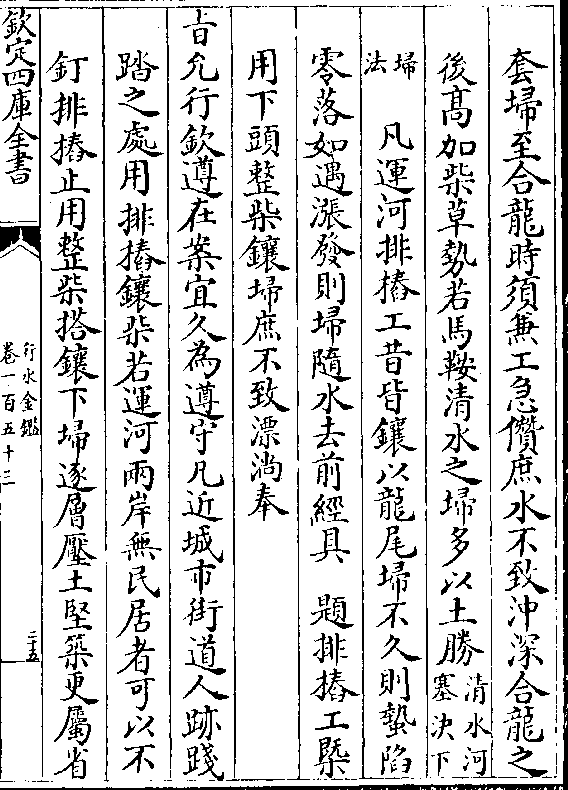 套埽至合龍時須兼工急儧庶水不致沖深合龍之
後髙加柴草勢若馬鞍清水之埽多以土勝清水河塞决下
埽法　凡運河排樁工昔皆鑲以龍尾埽不久則蟄陷
零落如遇漲發則埽隨水去前經具　題排樁工槩
用下頭整柴鑲埽庶不致漂淌奉
旨允行欽遵在案宜久為遵守凡近城市街道人跡踐
踏之處用排樁鑲柴若運河兩岸無民居者可以不
釘排樁止用整柴搭鑲下埽逐層壓土堅築更屬省
欽定四庫全書
行水金鑑
卷一百五十三
二十五